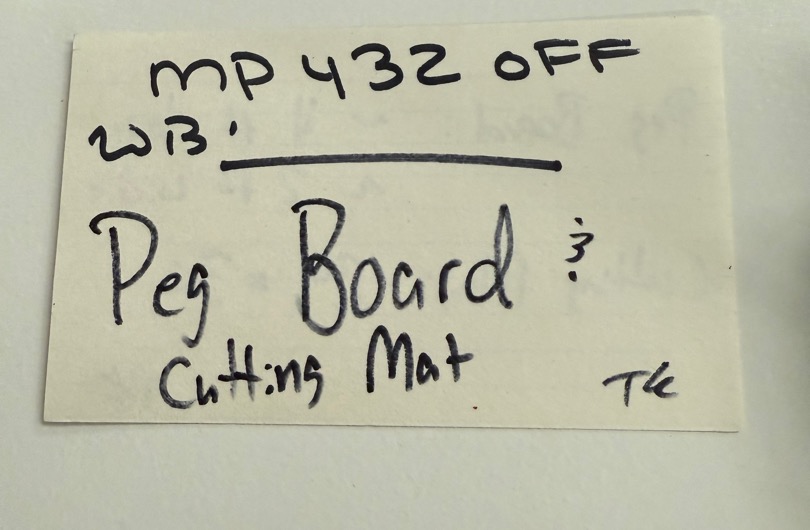 MP 432 OFF
WB.
Peg Board &
Cutting Mat
TK